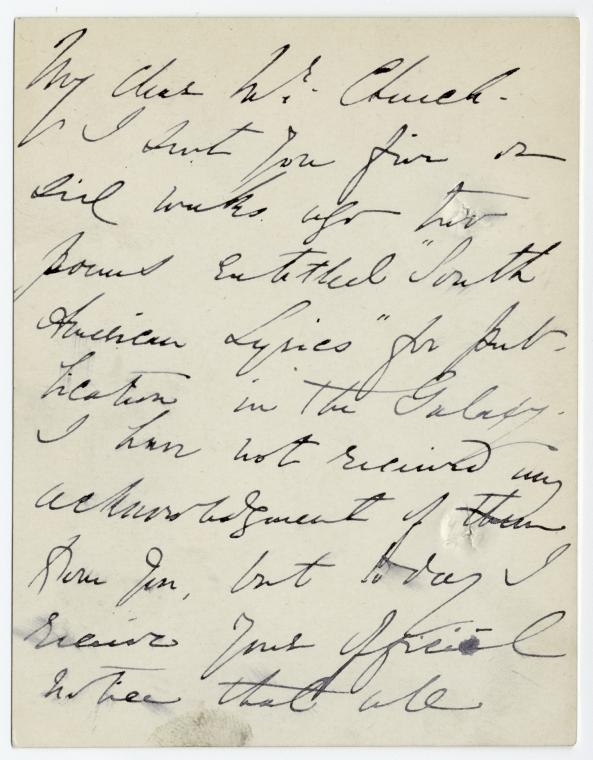 My dear Mr. Church.
I sent you five or
six weeks ago two
poems entitled "South
American Lyrics" for pub-
lication in the Galaxy.
I have not received any
acknowledgment of them
from you, but today I
receive your official
notice that all